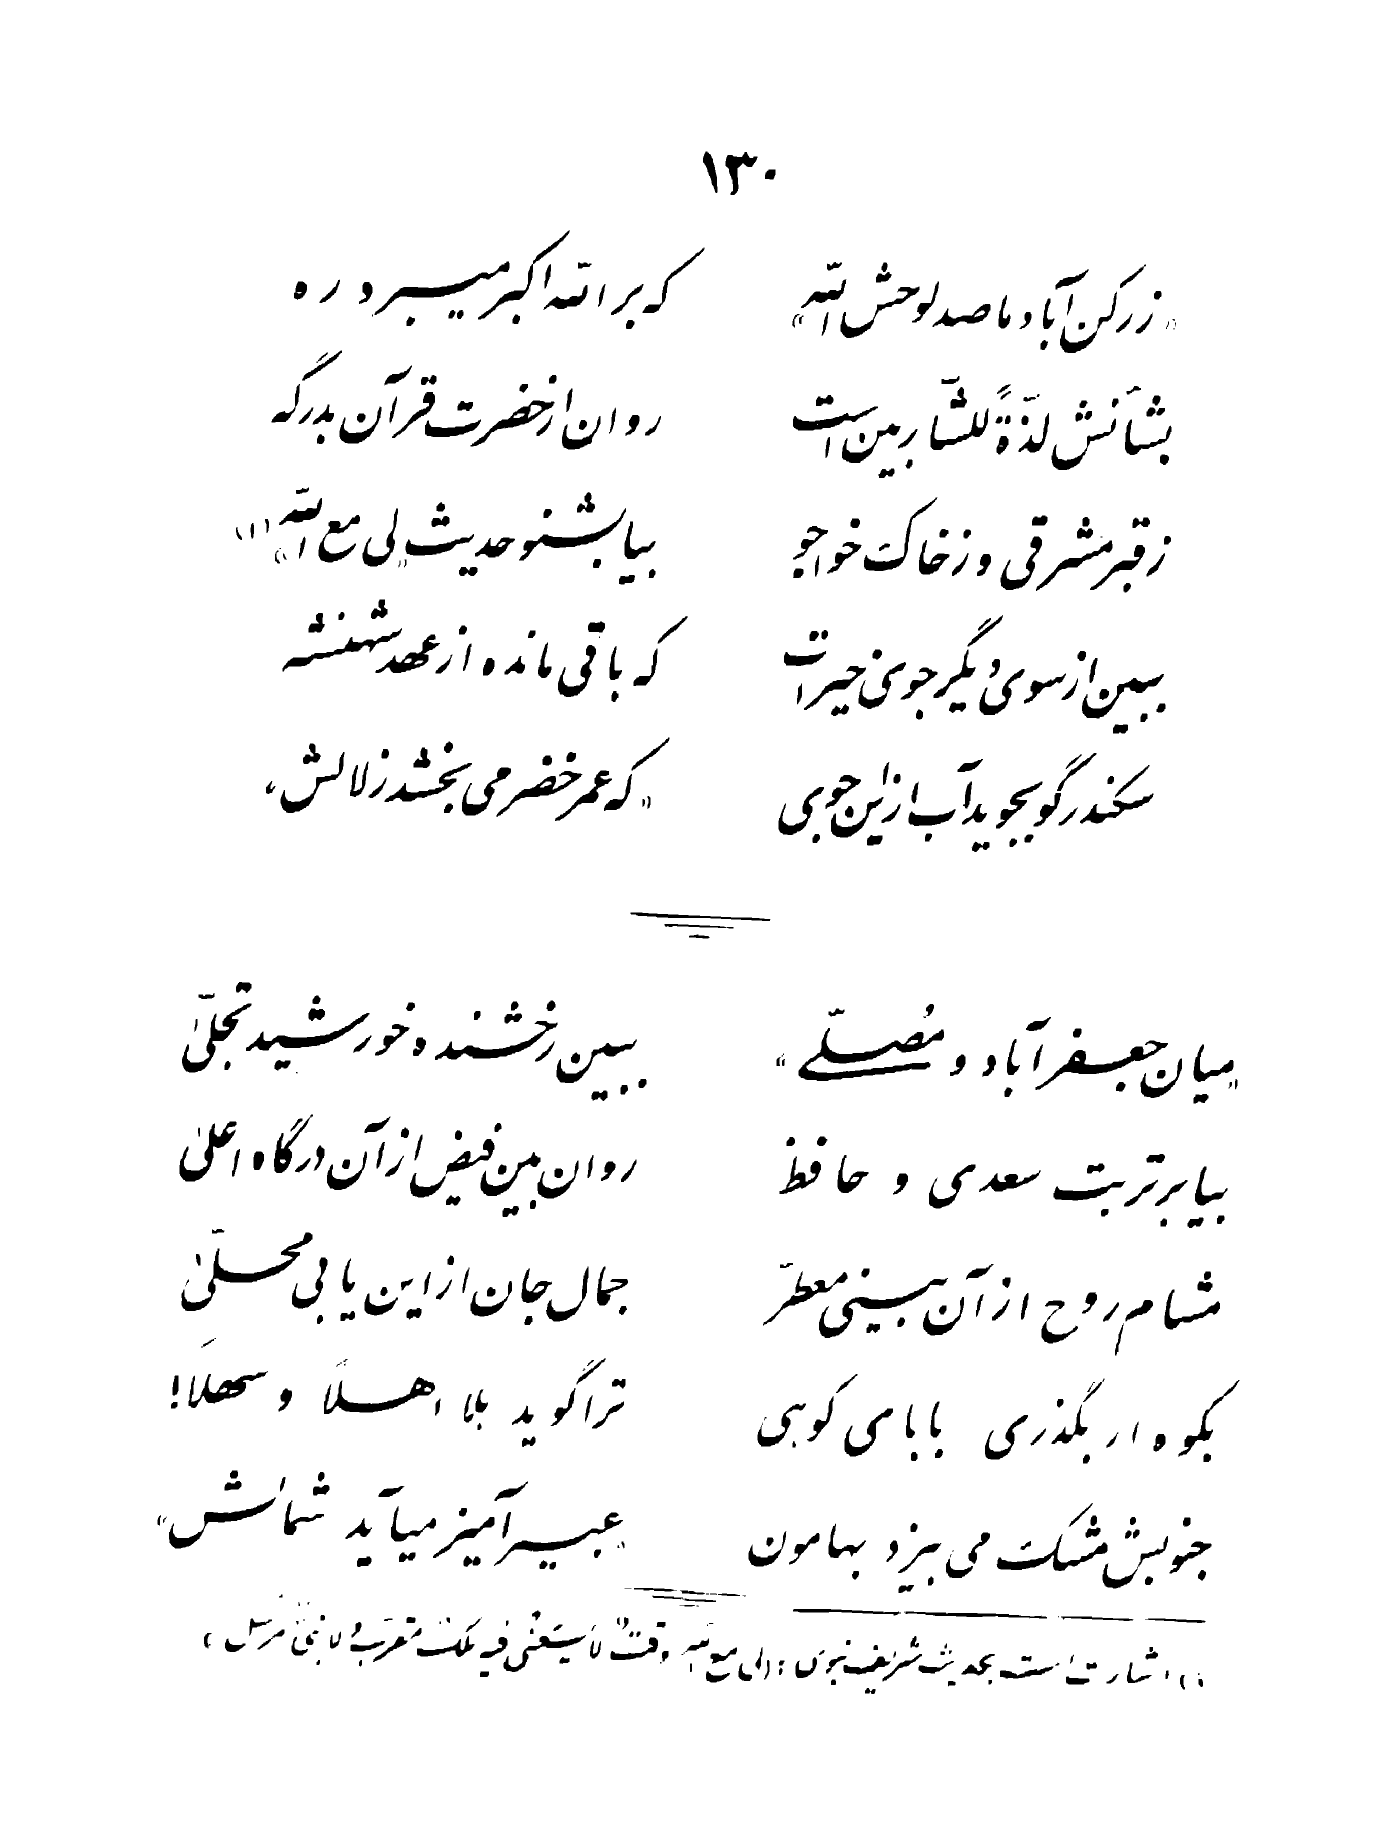 ۱۳۰
«ز رکن آباد ما صد لوحش الله» که بر الله اکبر میبرد ره
بشأنش لذّةً للشّاربین است روان از خضرت قرآن بدرگه
ز قبر مشرقی و ز خاک خواجو بیا بشنو حدیث «لی مع الله» (۱)
ببین از سوی دیگر جوی خیرات که باقی مانده از عهد شهنشه
سکندر گو بجوید آب ازاین جوبی «که عمر خضر می بخشد زلالش»
«میان جعفرآباد و مُصلّے» ببین رخشنده خورشید تجلّیٰ
بیا بر تربت سعدی و حافظ روان بین فیض از آن درگاه اعلیٰ
مشام روح از آن بینی معطّر جمال جان از این یابی محلّیٰ
بکوه ار بگذری بابای کوهی ترا گوید بلا اهلاً و سهلاً!
جنوبش مشک می بیزد بهامون «عبیر آمیز میآید شمالش»
(۱) اشارت است بحدیث شریف نبوی : (لی مع الله وقتٌ لا یسَعنی فیهِ ملکٌ مقرّبٌ و لا نبیٌّ مُرسَل)